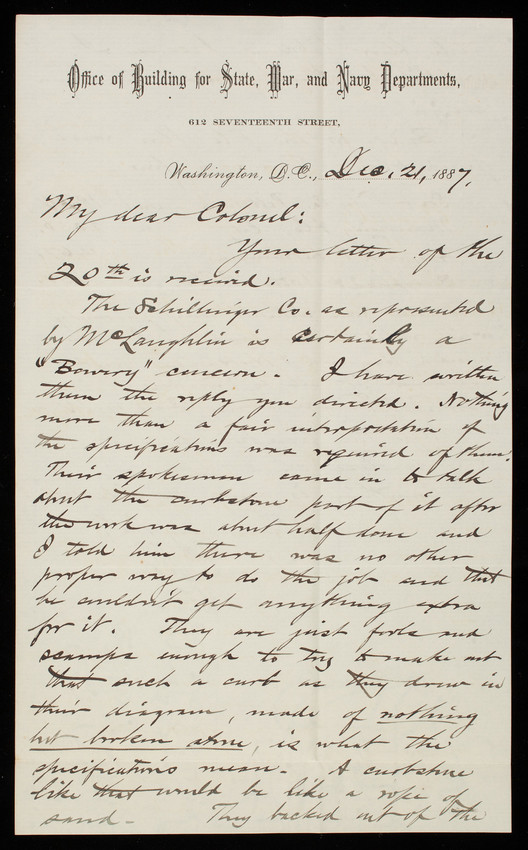 Office of Building for State, War, and Navy Departments,
612 SEVENTEENTH STREET,
Washington, D.C., Dec. 21, 1887.
My dear Colonel:
Your letter of the
20th is received.
The Schillinger Co. as represented
by McLaughlin is certainly a
"Bowery" concern. I have written
them the reply you directed. Nothing
more than a fair interpretation of
the specifications was required of them.
Their spokesman came in to talk
about the curbstone part of it after
the work was about half done and
I told him there was no other
proper way to do the job and that
he couldn't get anything extra
for it. They are just fools and
scamps enough to try to make out
that such a curb as they drew in
their diagram, made of nothing
but broken stone, is what the
specifications mean. A curbstone
like that would be like a rope of
sand. They backed out of the